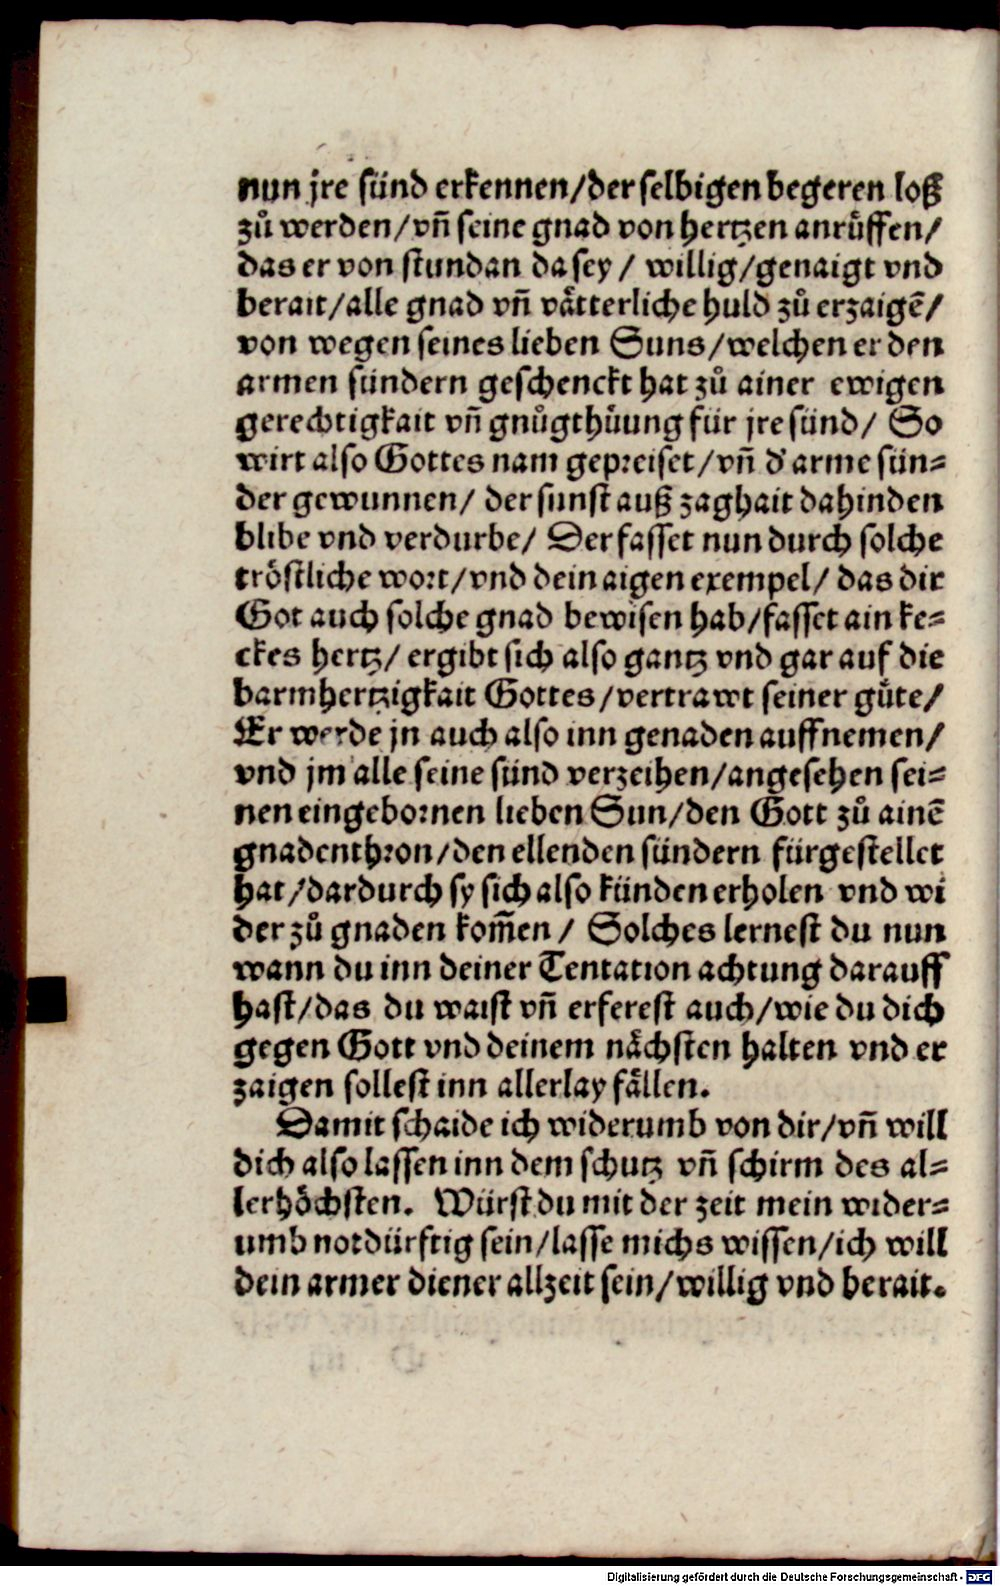 nun jre sünd erkennen/der selbigen begeren loß
zů werden/vñ seine gnad von hertzen anrůffen/
das er von stundan da sey / willig/genaigt vnd
berait/alle gnad vñ våtterliche huld zů erzaigē/
von wegen seines lieben Suns/welchen er den
armen sündern geschenckt hat zů ainer ewigen
gerechtigkait vñ gnůgthůung für jre sünd/ So
wirt also Gottes nam gepreiset/vñ d' arme sün=
der gewunnen/ der sunst auß zaghait dahinden
blibe vnd verdurbe/ Der fasset nun durch solche
tröstliche wort/vnd dein aigen exempel/ das dir
Got auch solche gnad bewisen hab/fasset ain ke=
ckes hertz/ ergibt sich also gantz vnd gar auf die
barmhertzigkait Gottes/vertrawt seiner gůte/
Er werde jn auch also inn genaden auffnemen/
vnd jm alle seine sünd verzeihen/angesehen sei=
nen eingebornen lieben Sun/den Gott zů ainē
gnadenthron/den ellenden sündern fürgestellet
hat/dardurch sy sich also künden erholen vnd wi
der zů gnaden kom̄en / Solches lernest du nun
wann du inn deiner Tentation achtung darauff
hast/das du waist vñ erferest auch/wie du dich
gegen Gott vnd deinem nåchsten halten vnd er
zaigen sollest inn allerlay fållen.
Damit schaide ich widerumb von dir/vñ will
dich also lassen inn dem schutz vñ schirm des al=
lerhöchsten. Würst du mit der zeit mein wider=
umb notdürftig sein/lasse michs wissen/ich will
dein armer diener allzeit sein/willig vnd berait.
Digitalisierung gefördert durch die Deutsche Forschungsgemeinschaft - DFG